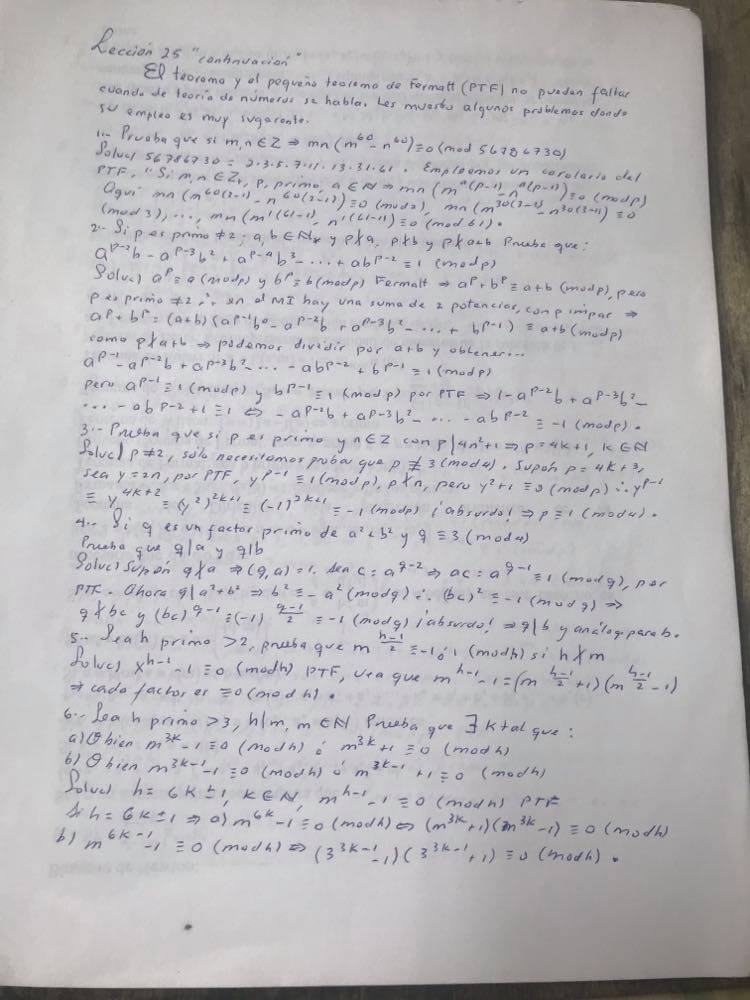 Lección 25 "continuación"
El teorema y el pequeño teorema de Fermatt (PTF) no pueden faltar
cuando de teoría de números se habla. Les muestro algunos problemas donde
su empleo es muy sugerente.
1.- Prueba que si m,n∈Z ⇒ mn(m^60 - n^60)≡0(mod 56786730)
Soluc) 56786730 = 2·3·5·7·11·13·31·61. Empleemos un corolario del
PTF, "Si m,n∈Z+, P, primo, a∈N ⇒ mn(m^a(p-1) - n^a(p-1))≡0 (mod p)
Aquí mn(m^60(2-1) - n^60(2-1))≡0 (mod 2), mn(m^30(3-1) - n^30(3-1))≡0
(mod 3), ..., mn(m^1(61-1) - n^1(61-1))≡0 (mod 61).
2.- Si p es primo ≠2; a,b∈N* y p∤a, p∤b y p∤a+b Prueba que:
a^p-2 b - a^p-3 b^2 + a^p-4 b^3 - ... + ab^p-2 ≡ 1 (mod p)
Soluc) a^p ≡ a (mod p) y b^p ≡ b (mod p) Fermatt ⇒ a^p + b^p ≡ a+b (mod p), pero
p es primo ≠2 ∴ en el MI hay una suma de 2 potencias, con p impar ⇒
a^p + b^p = (a+b)(a^p-1 b^0 - a^p-2 b + a^p-3 b^2 - ... + b^p-1) ≡ a+b (mod p)
como p∤a+b ⇒ podemos dividir por a+b y obtener...
a^p-1 - a^p-2 b + a^p-3 b^2 - ... - ab^p-2 + b^p-1 ≡ 1 (mod p)
pero a^p-1 ≡ 1 (mod p) y b^p-1 ≡ 1 (mod p) por PTF ⇒ 1 - a^p-2 b + a^p-3 b^2 -
... - ab^p-2 + 1 ≡ 1 ⇔ - a^p-2 b + a^p-3 b^2 - ... - ab^p-2 ≡ -1 (mod p).
3.- Prueba que si p es primo y n∈Z con p|4n^2+1 ⇒ p=4k+1, k∈N
Soluc) p≠2, sólo necesitamos probar que p≢3 (mod 4). Supón p=4k+3,
sea y=2n, por PTF, y^p-1 ≡ 1 (mod p), p∤n, pero y^2+1 ≡ 0 (mod p) ∴ y^p-1
≡ y^4k+2 ≡ (y^2)^2k+1 ≡ (-1)^2k+1 ≡ -1 (mod p) ¡absurdo! ⇒ p≡1 (mod 4).
4.- Si q es un factor primo de a^2+b^2 y q≡3 (mod 4)
Prueba que q|a y q|b
Soluc) Supón q∤a ⇒ (q,a)=1. Sea c=a^q-2 ⇒ ac=a^q-1 ≡ 1 (mod q), por
PTF. Ahora q|a^2+b^2 ⇒ b^2 ≡ -a^2 (mod q) ∴ (bc)^2 ≡ -1 (mod q) ⇒
q∤bc y (bc)^q-1 ≡ (-1)^(q-1)/2 ≡ -1 (mod q) ¡absurdo! ⇒ q|b y análog. para b.
5.- Sea h primo >2, prueba que m^(h-1)/2 ≡ -1 ó 1 (mod h) si h∤m
Soluc) x^h-1 - 1 ≡ 0 (mod h) PTF, vea que m^h-1 - 1 = (m^(h-1)/2 + 1)(m^(h-1)/2 - 1)
⇒ cada factor es ≡0 (mod h).
6.- Sea h primo >3, h|m, m∈N Prueba que ∃ k tal que:
a) O bien m^3k - 1 ≡ 0 (mod h) ó m^3k + 1 ≡ 0 (mod h)
b) O bien m^3k-1 - 1 ≡ 0 (mod h) ó m^3k-1 + 1 ≡ 0 (mod h)
Soluc) h = 6k±1, k∈N, m^h-1 - 1 ≡ 0 (mod h) PTF
Si h = 6k±1 ⇒ a) m^6k - 1 ≡ 0 (mod h) ⇔ (m^3k + 1)(m^3k - 1) ≡ 0 (mod h)
b) m^6k-1 - 1 ≡ 0 (mod h) ⇔ (3^3k-1 - 1)(3^3k-1 + 1) ≡ 0 (mod h).